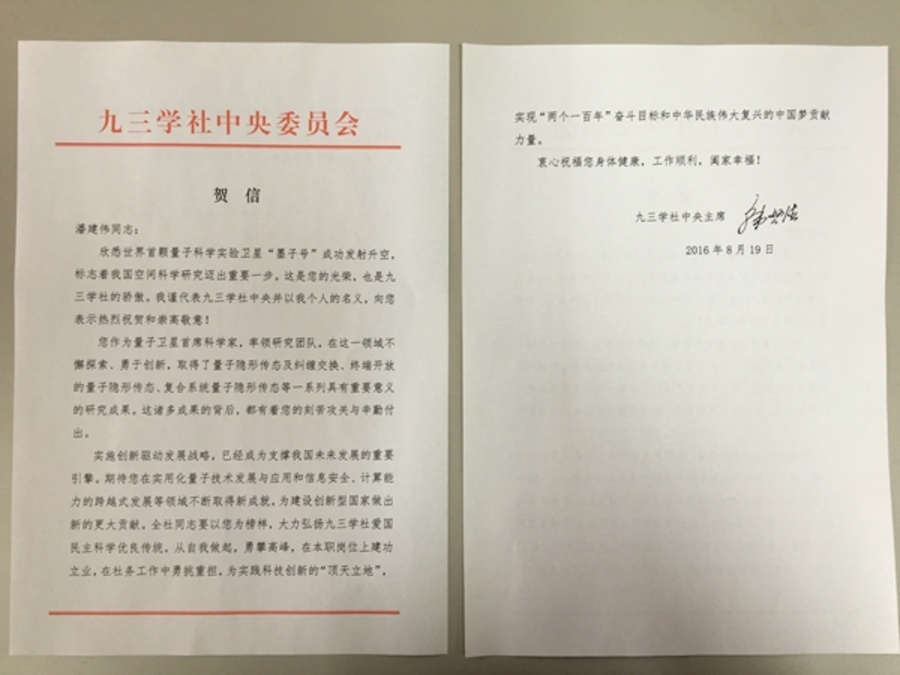 九三学社中央委员会
贺 信
潘建伟同志：
欣悉世界首颗量子科学实验卫星“墨子号”成功发射升空，
标志着我国空间科学研究迈出重要一步。这是您的光荣，也是九
三学社的骄傲。我谨代表九三学社中央并以我个人的名义，向您
表示热烈祝贺和崇高敬意！
您作为量子卫星首席科学家，率领研究团队，在这一领域不
懈探索、勇于创新，取得了量子隐形传态及纠缠交换、终端开放
的量子隐形传态、复合系统量子隐形传态等一系列具有重要意义
的研究成果。这诸多成果的背后，都有着您的刻苦攻关与辛勤付
出。
实施创新驱动发展战略，已经成为支撑我国未来发展的重要
引擎。期待您在实用化量子技术发展与应用和信息安全、计算能
力的跨越式发展等领域不断取得新成就，为建设创新型国家做出
新的更大贡献。全社同志要以您为榜样，大力弘扬九三学社爱国
民主科学优良传统，从自我做起，勇攀高峰，在本职岗位上建功
立业，在社务工作中勇挑重担，为实践科技创新的“顶天立地”，
实现“两个一百年”奋斗目标和中华民族伟大复兴的中国梦贡献
力量。
衷心祝福您身体健康，工作顺利，阖家幸福！
九三学社中央主席
2016 年 8 月 19 日